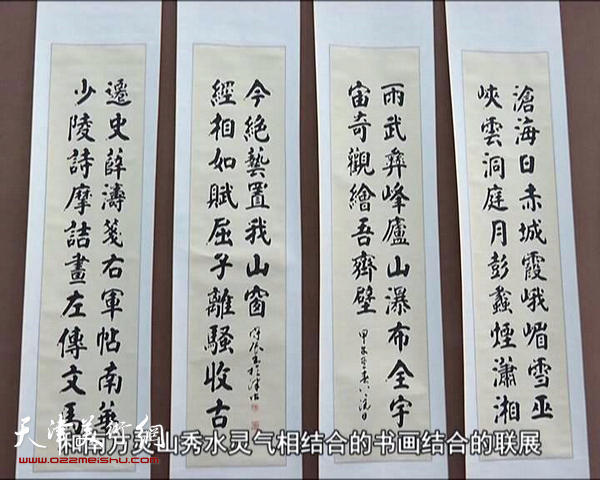 滄海日赤城霞峨嵋雪巫
峽雲洞庭月彭蠡煙瀟湘
雨武彞峰廬山瀑布全宇
宙奇觀繪吾齊壁
少陵詩摩詰畫左傳文馬
遷史薛濤箋右軍帖南華
經相如賦屈子離騷收古
今絕藝置我山窗
和南方灵山秀水灵气相结合的书画结合的联展
天津美術網
www.022meishu.com